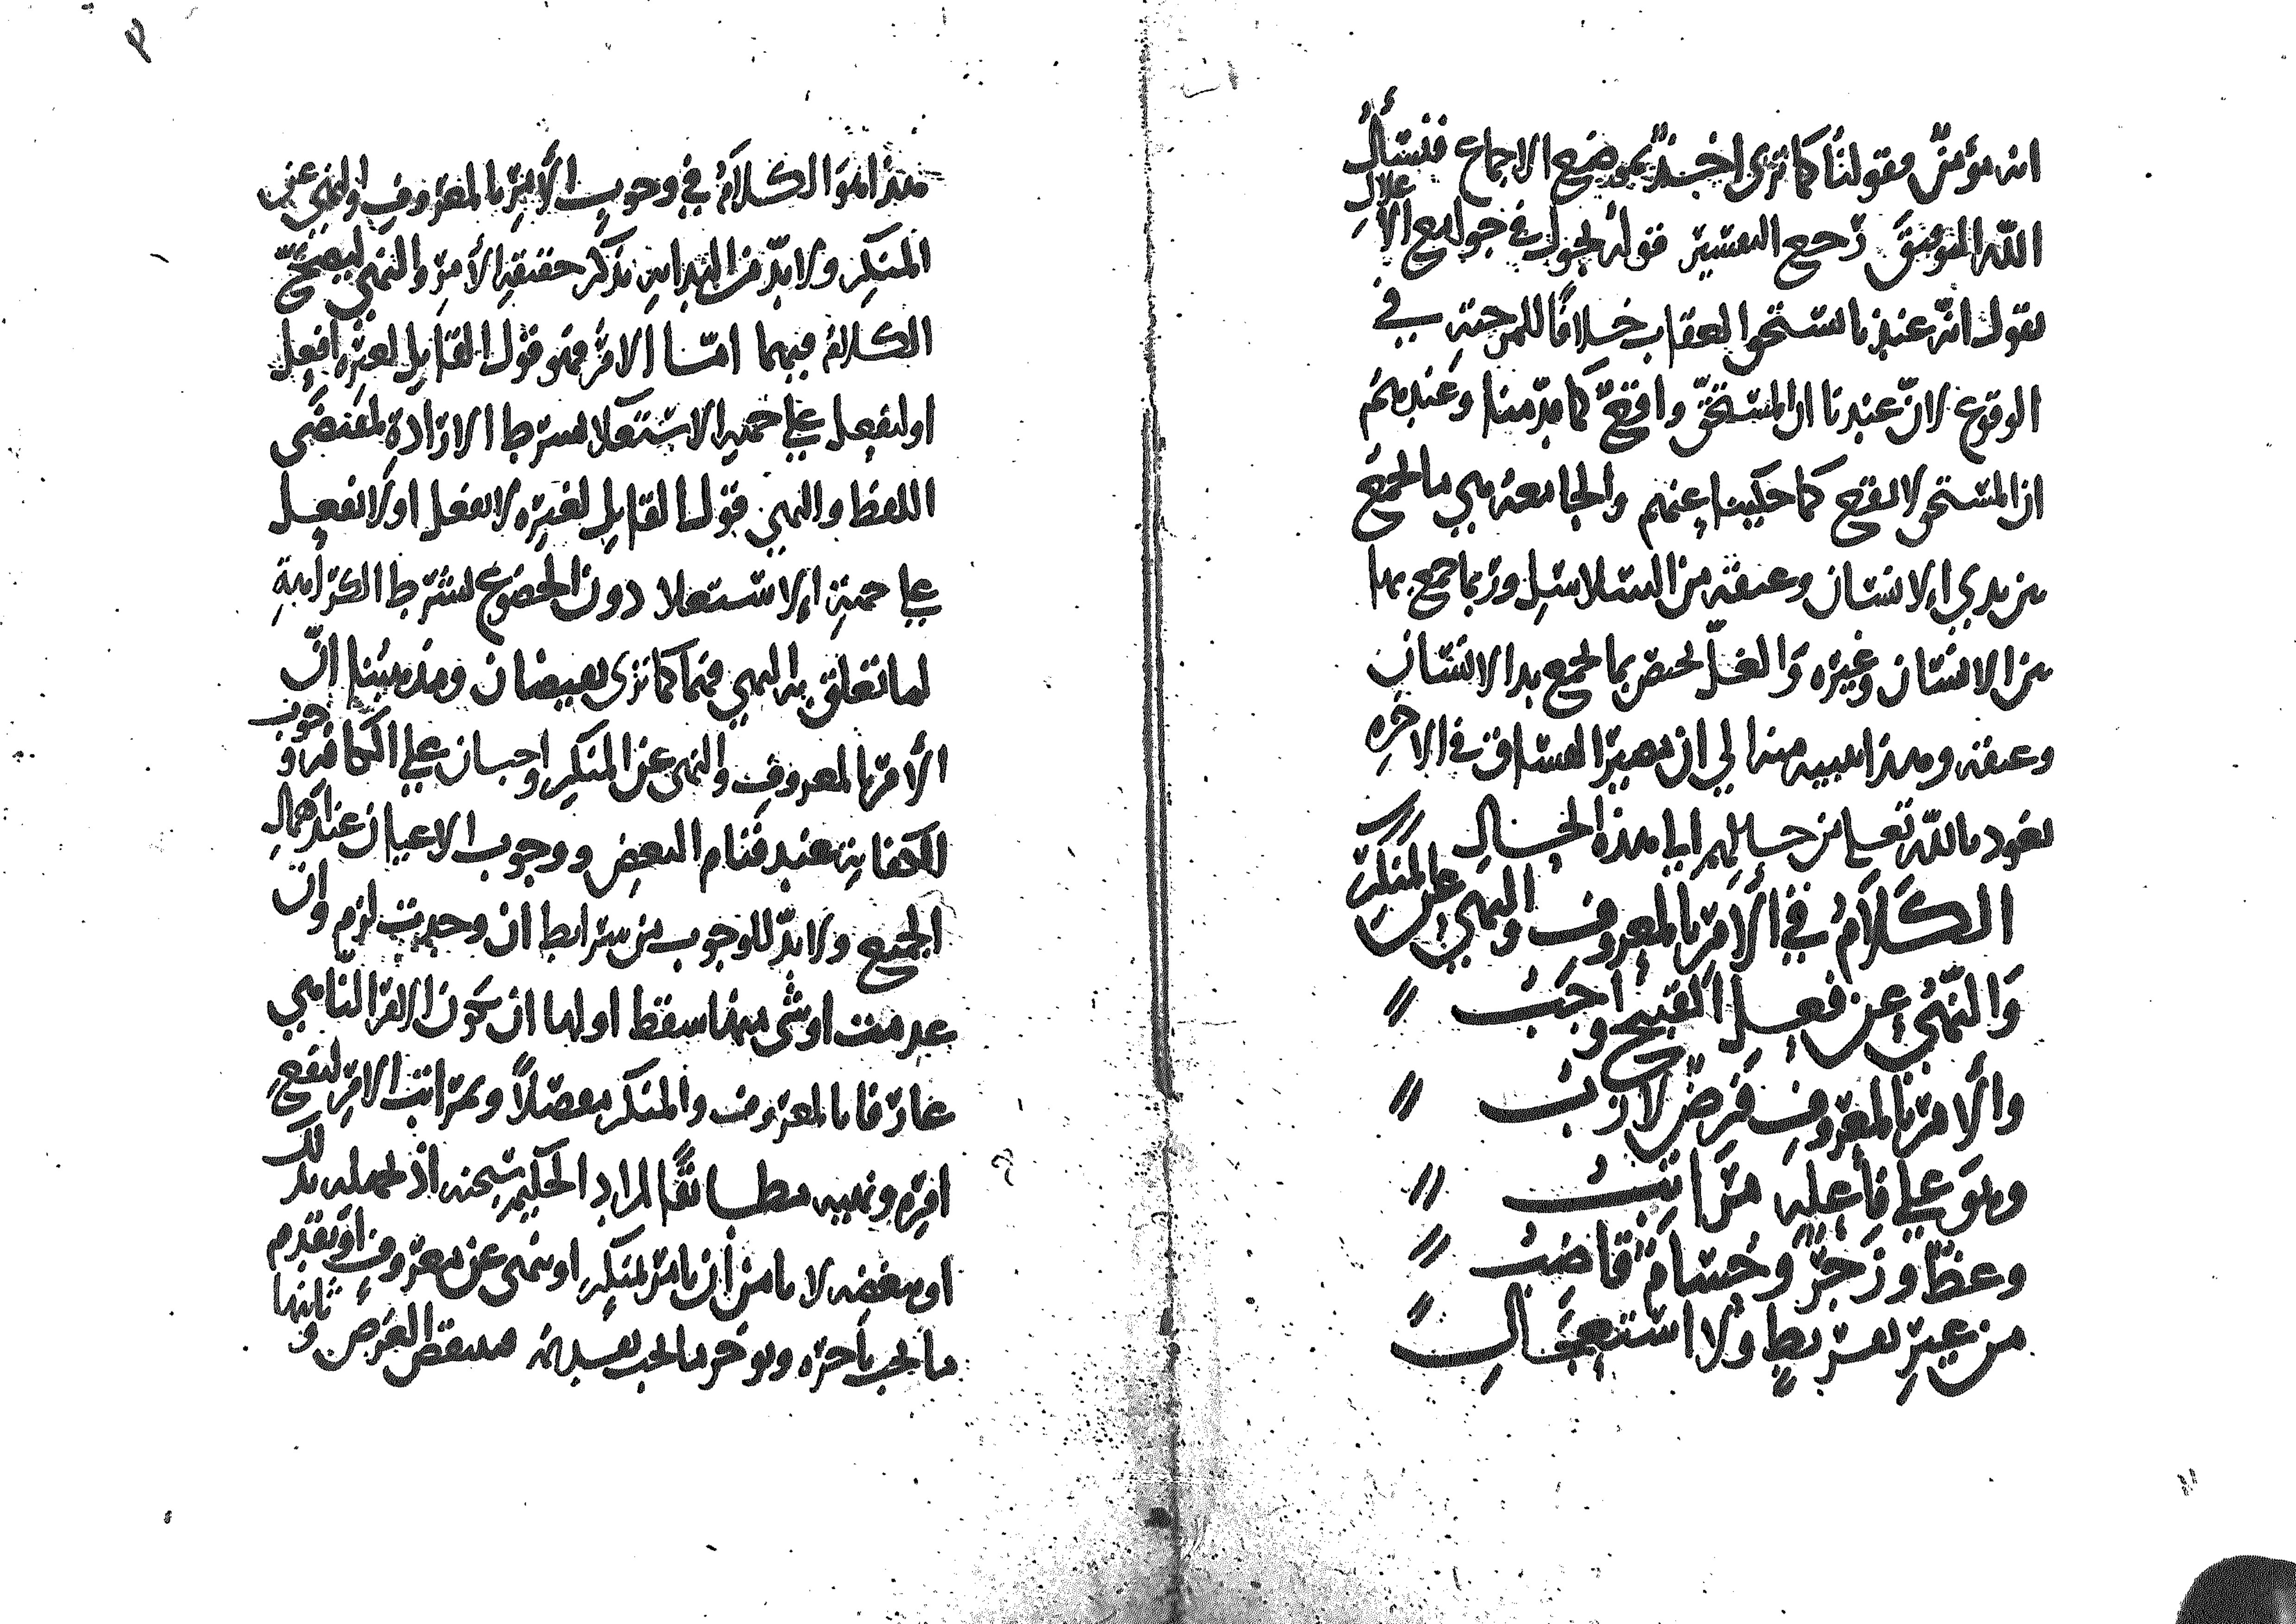 انه مؤمن وقولنا كما ترى اخذ بموضع الاجماع فنسأل
الله التوفيق رجع التفسير قوله يجول في جوامع الاغلال
نقول انه عندنا يستحق العقاب خلافا للمرجئة في
الوقوع لان عندنا ان المستحق واقع كما قدمنا وعندهم
ان المستحق لا يقع كما حكينا عنهم والجامعة هي ما تجمع
بين يدي الانسان وعنقه من السلاسل وربما جمع بها
بين الانسان وغيره والغل يختص بما يجمع يد الانسان
وعنقه وهذا تنبيه منه الى ان مصير الفساق في الاخره
نعوذ بالله تعالى من حالهم الى هذه الحال
الكلام في الأمر بالمعروف والنهي عن المنكر
والنهي عن فعل القبيح واجب
والأمر بالمعروف فرض لازب
وهو على فاعله مراتب
وعظ وزجر وحسام قاضب
من غير تفريط ولا استعجال
هذا هو الكلام في وجوب الأمر بالمعروف والنهي عن
المنكر ولا بد من البداية بذكر حقيقة الأمر والنهي ليصح
الكلام فيهما اما الامر فهو قول القايل لغيره افعل
او ليفعل على جهة الاستعلا بشرط الارادة لمقتضى
اللفظ والنهي قول القايل لغيره لا تفعل او لا يفعل
على جهة الاستعلا دون الخضوع بشرط الكراهة
لما تعلق به النهي فهما كما ترى نقيضان ومذهبنا ان
الأمر بالمعروف والنهي عن المنكر واجبان على الكافة وجوب
الكفاية عند قيام البعض ووجوب الاعيان عند اهمال
الجميع ولا بد للوجوب من شرايط ان وجدت لزم وان
عدمت او شئ منها سقط اولها ان يكون الامر الناهي
عارفا بالمعروف والمنكر مفصلاً وبمراتب الامر ليقع
امره ونهيه مطابقًا لمراد الحكيم سبحنه اذ لجهله بذلك
او ببعضه لا يامن أن يامر بمنكر او ينهى عن معروف او يقدم
ما يجب تأخره ويوخر ما يجب تقديمه فينتقض الغرض وثانيها